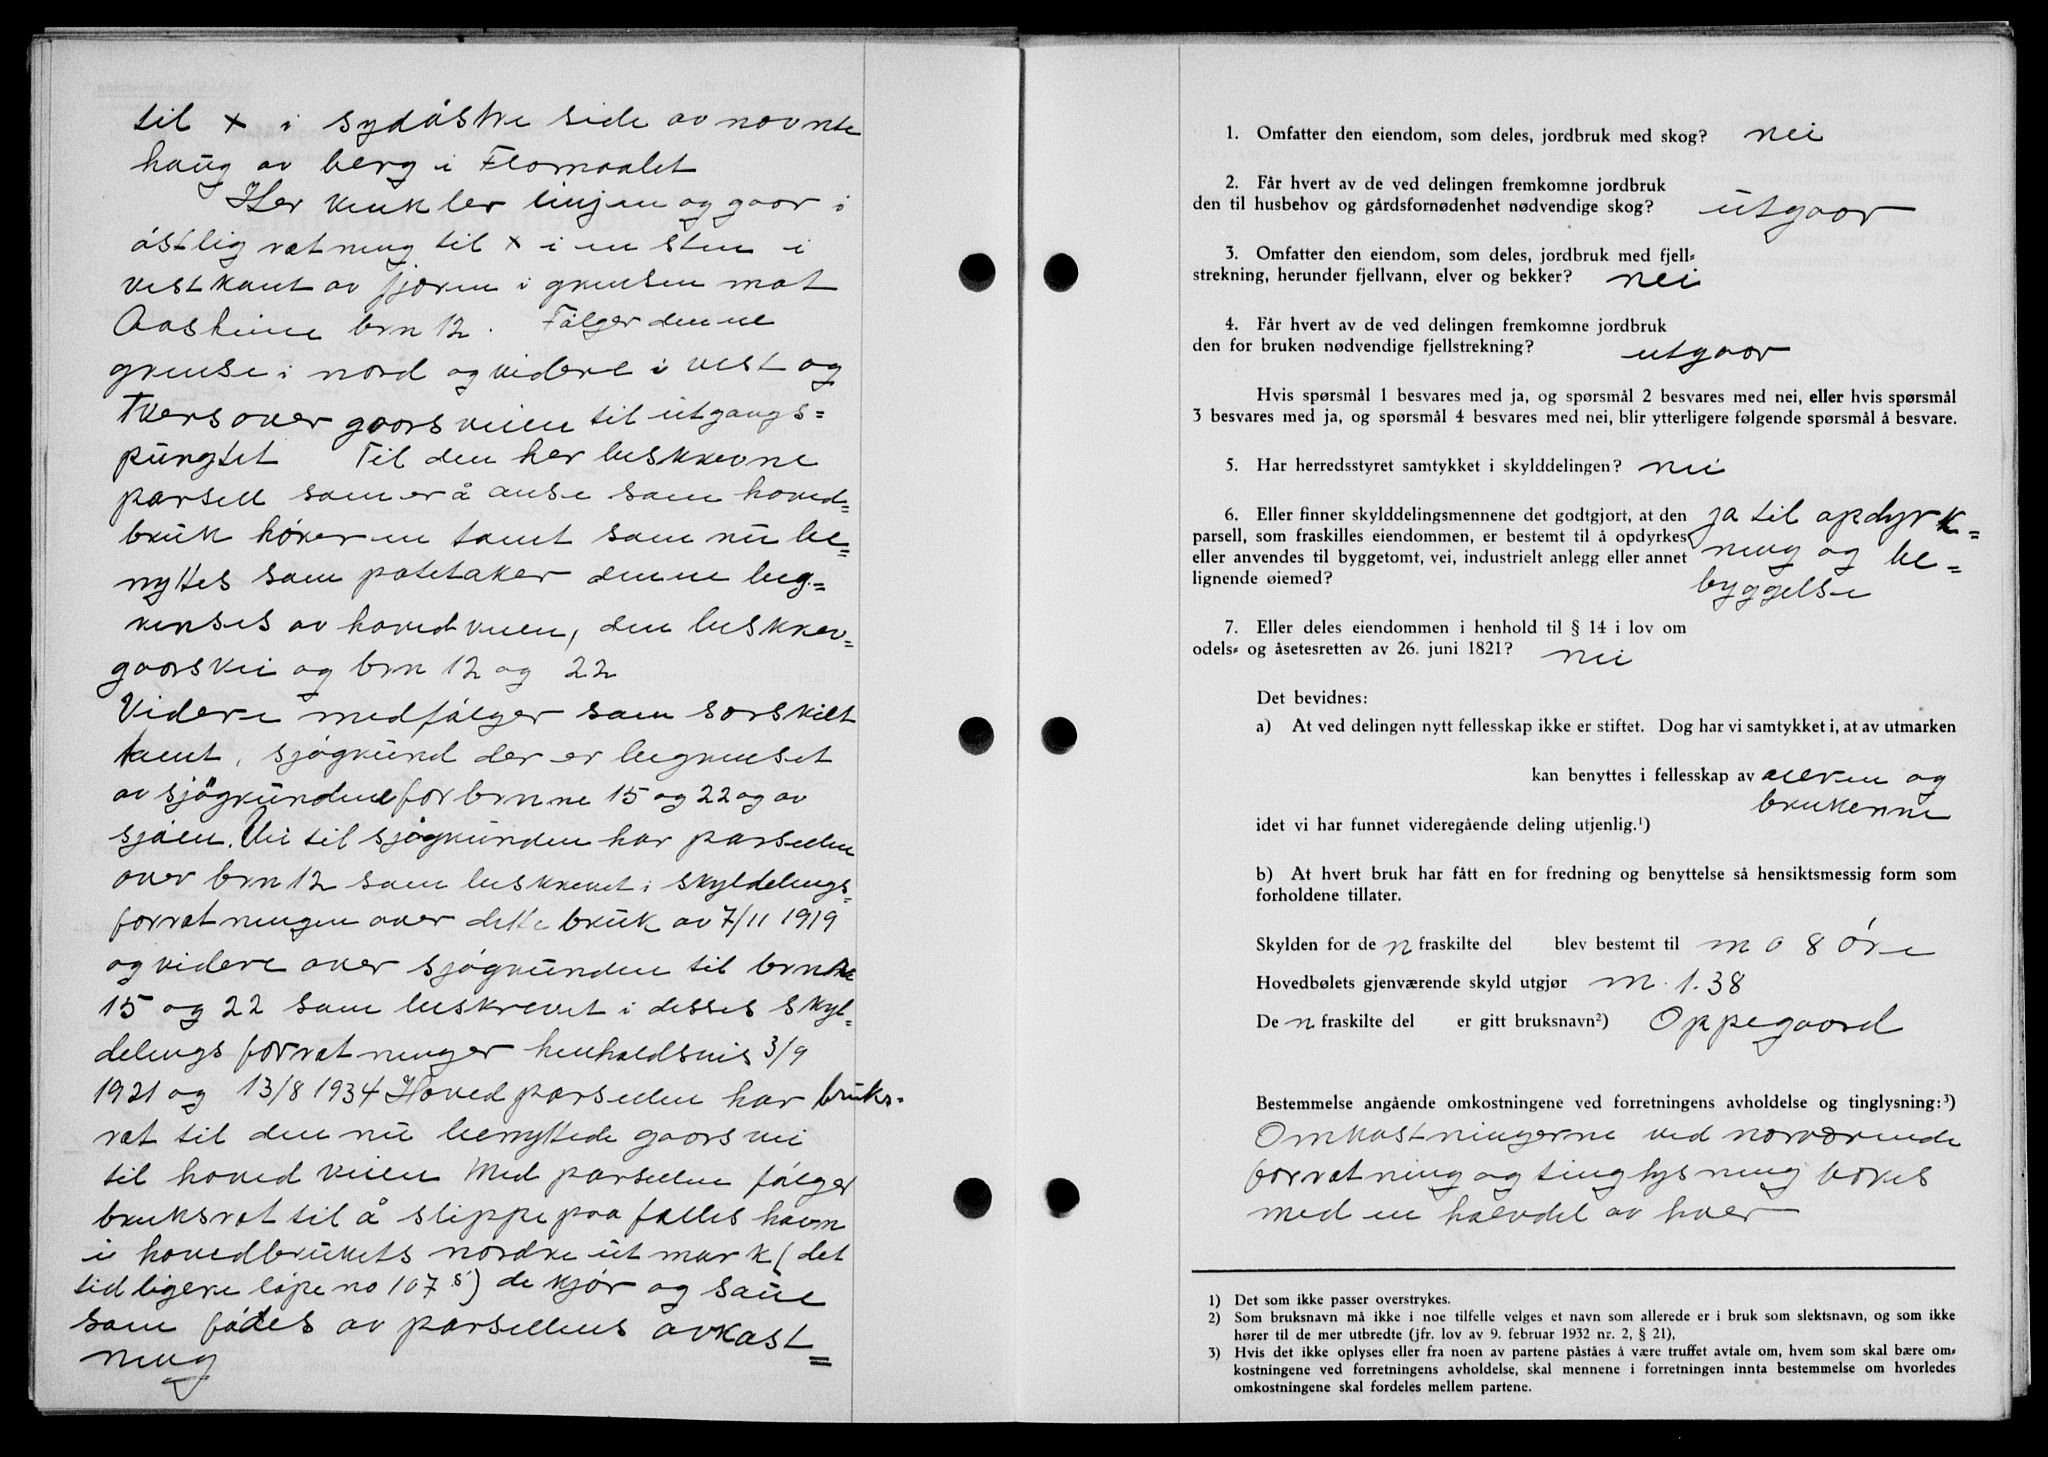 til x i sydöstre side av nævnte
haug av berg i Flomaalet
Her vinkler linjen og gaar i
östlig rætning til x i en sten i
vestkant av fjæren i grensen mot
Aasheim brn 12. Fölger denne
grense i nord og videre i vest og
tvers over gaarsveien til utgangs=
pungtet Til den her beskrevne
parsell som er å anse som hoved=
bruk hörer en tomt som nu be=
nyttes som potetaker denne beg=
renses av hovedveien, den beskrev-
gaarsvei og brn 12 og 22
Videre medfölger som særskilt
tomt, sjögrund der er begrenset
av sjögrundene for brnne 15 og 22 og av
sjöen. Vei til sjögrunden har parsellen
over brn 12 som beskrevet i skyldelings=
forrætningen over dette bruk av 7/11 1919
og videre over sjögrunden til brn ne
15 og 22 som beskrevet i disses skyl=
delings forrætninger henholdsvis 3/9
1921 og 13/8 1934 Hovedparsellen har bruks-
ræt til den nu benyttede gaarsvei
til hovedveien Med parsellen fölger
bruksræt til å slippe paa fælles havn
i hovedbrukets nordre utmark (det
tidligere löpe no 107 s) de kjör og saue
som födes av parsellens avkast=
ning
1. Omfatter den eiendom, som deles, jordbruk med skog? nei
2. Får hvert av de ved delingen fremkomne jordbruk
den til husbehov og gårdsfornødenhet nødvendige skog? utgaar
3. Omfatter den eiendom, som deles, jordbruk med fjell=
strekning, herunder fjellvann, elver og bekker? nei
4. Får hvert av de ved delingen fremkomne jordbruk
den for bruken nødvendige fjellstrekning? utgaar
Hvis spørsmål 1 besvares med ja, og spørsmål 2 besvares med nei, eller hvis spørsmål
3 besvares med ja, og spørsmål 4 besvares med nei, blir ytterligere følgende spørsmål å besvare.
5. Har herredsstyret samtykket i skylddelingen? nei
6. Eller finner skylddelingsmennene det godtgjort, at den ja til opdyrk=
parsell, som fraskilles eiendommen, er bestemt til å opdyrkes ning og be=
eller anvendes til byggetomt, vei, industrielt anlegg eller annet byggelse
lignende øiemed?
7. Eller deles eiendommen i henhold til § 14 i lov om
odels= og åsetesretten av 26. juni 1821? nei
Det bevidnes:
a) At ved delingen nytt fellesskap ikke er stiftet. Dog har vi samtykket i, at av utmarken
kan benyttes i fellesskap av eieren og
brukerne
idet vi har funnet videregående deling utjenlig.¹)
b) At hvert bruk har fått en for fredning og benyttelse så hensiktsmessig form som
forholdene tillater.
Skylden for de n fraskilte del blev bestemt til m 0 8 öre
Hovedbølets gjenværende skyld utgjør m. 1.38
De n fraskilte del er gitt bruksnavn²) Oppegaard
Bestemmelse angående omkostningene ved forretningens avholdelse og tinglysning:³)
Omkostningerne ved nærværende
forrætning og tinglysning bæres
med en halvdel av hver
1) Det som ikke passer overstrykes.
2) Som bruksnavn må ikke i noe tilfelle velges et navn som allerede er i bruk som slektsnavn, og som ikke
hører til de mer utbredte (jfr. lov av 9. februar 1932 nr. 2, § 21),
3) Hvis det ikke oplyses eller fra noen av partene påståes å være truffet avtale om, hvem som skal bære om=
kostningene ved forretningens avholdelse, skal mennene i forretningen innta bestemmelse om hvorledes
omkostningene skal fordeles mellem partene.